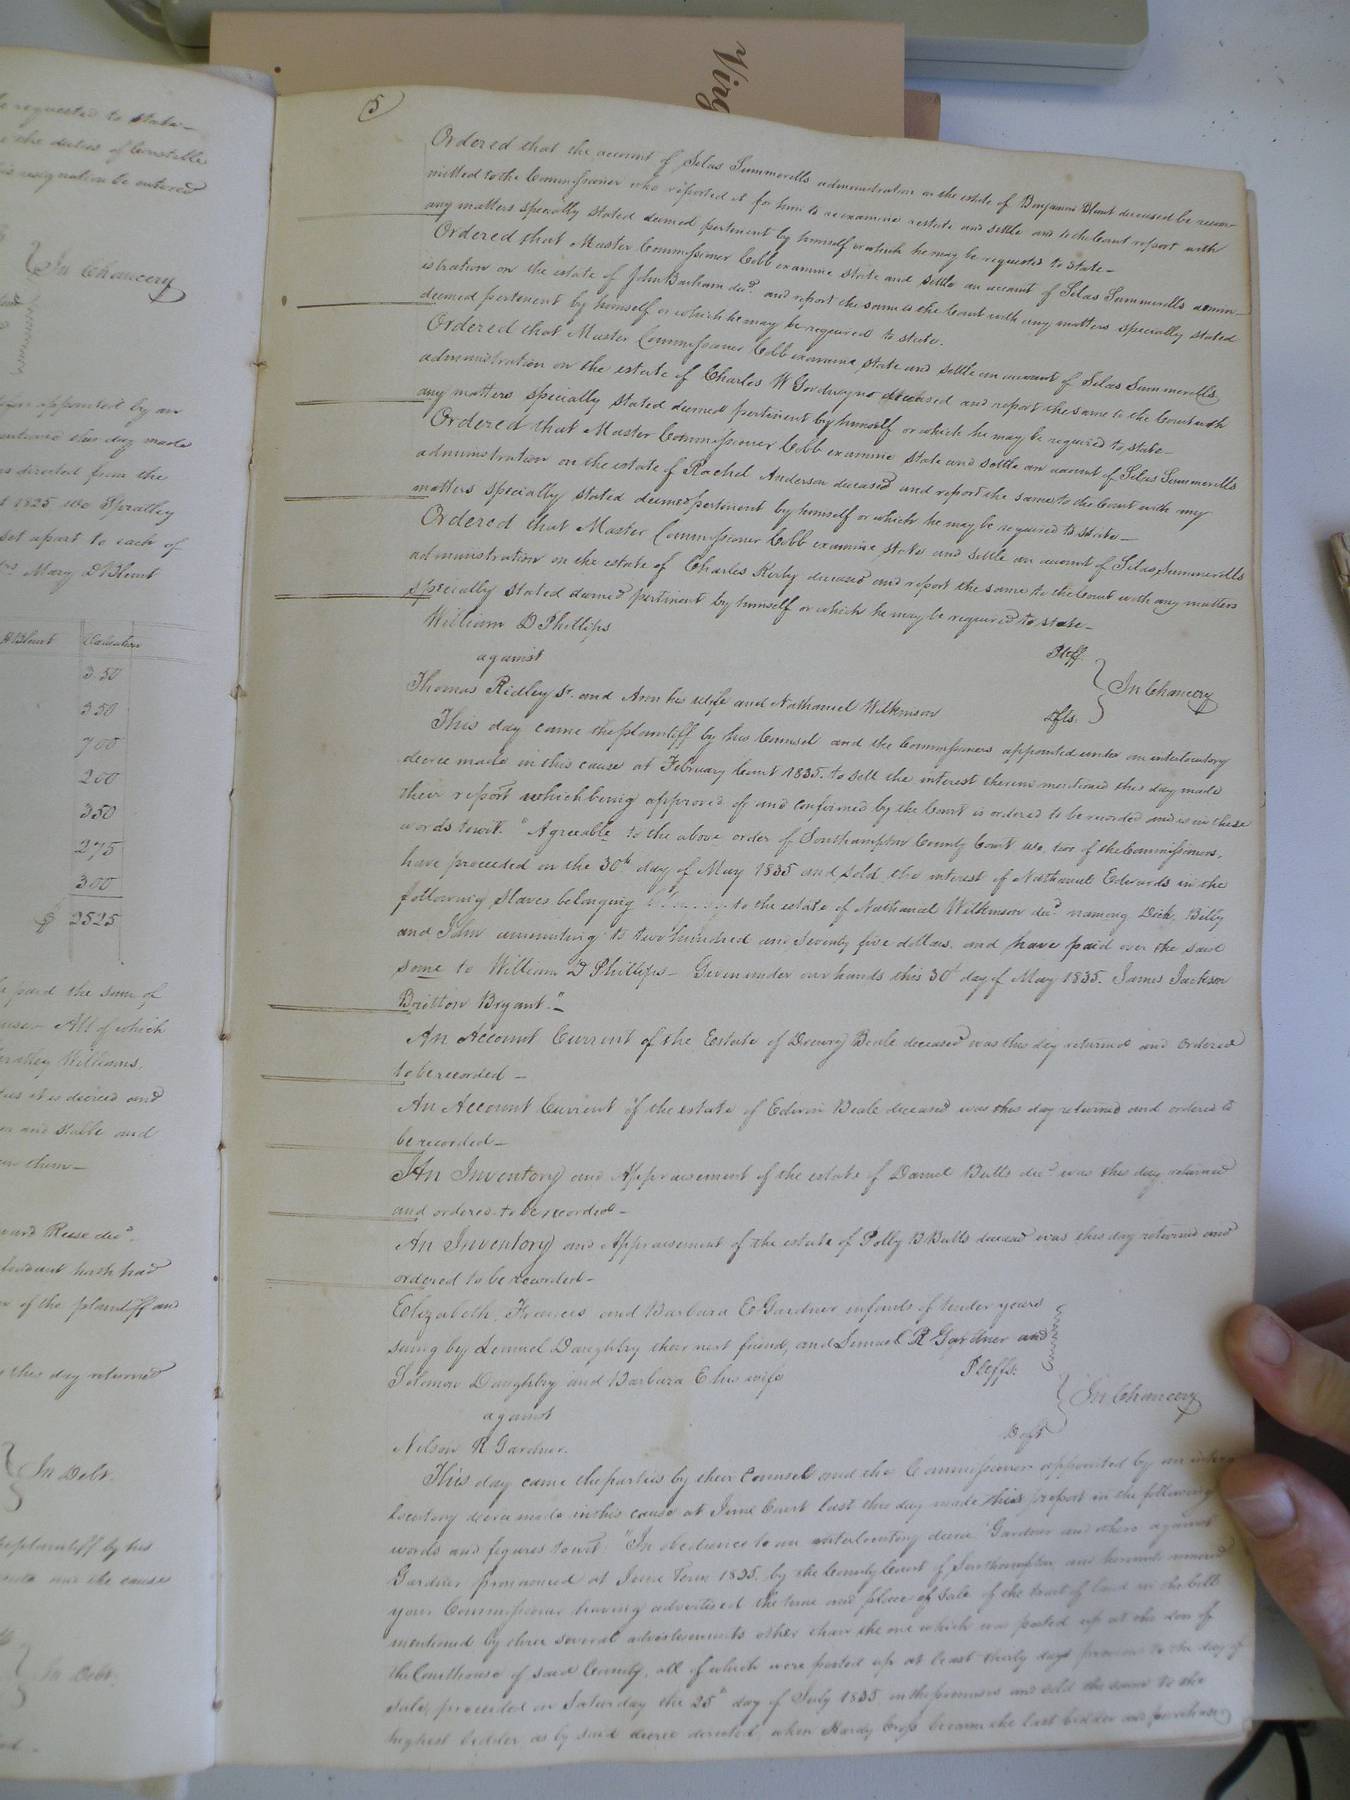 Virg
e requested to state—
the duties of Constable
his resignation be entered
In Chancery
appointed by an
this day made
as directed from the
1825. we Spratley
set apart to each of
Mary D Blount
Blount Valuation
350
350
700
200
350
275
300
$ 2525
paid the sum of
All of which
Spratley Williams.
it is decreed and
and stable and
them—
Reese decd.
defendant hath had
of the plaintiff and
this day returned
In Debt.
the plaintiff by his
the cause
In Debt.
5
Ordered that the account of Silas Summerells administration on the estate of Benjamin Blunt deceased be recom-
mitted to the Commissioner who reported it for him to reexamine restate and settle and to the Court report with
any matters specially stated deemed pertinent by himself or which he may be requested to state—
Ordered that Master Commissioner Cobb examine state and settle an account of Silas Summerells admin-
istration on the estate of John Barham decd. and report the same to the Court with any matters specially stated
deemed pertinent by himself or which he may be required to state.
Ordered that Master Commissioner Cobb examine state and settle an account of Silas Summerells
administration on the estate of Charles W deceased and report the same to the Court with
any matters specially stated deemed pertinent by himself or which he may be required to state—
Ordered that Master Commissioner Cobb examine state and settle an account of Silas Summerells
administration on the estate of Rachel Anderson deceased and report the same to the Court with any
matters specially stated deemed pertinent by himself or which he may be required to state—
Ordered that Master Commissioner Cobb examine state and settle an account of Silas Summerells
administration on the estate of Charles Kirby deceased and report the same to the Court with any matters
specially stated deemed pertinent by himself or which he may be required to state—
William D Phillips Pltff.
against In Chancery
Thomas Ridley Sr. and Ann his wife and Nathaniel Wilkinson Dfts.
This day came the plaintiff by his Counsel and the Commissioners appointed under an interlocutory
decree made in this cause at February Court 1835. to sell the interest therein mentioned this day made
their report which being approved of and confirmed by the Court is ordered to be recorded and is in these
words towit. "Agreeable to the above order of Southampton County Court we, two of the Commissioners,
have proceeded on the 30th day of May 1835 and sold the interest of Nathaniel Edwards in the
following slaves belonging to the estate of Nathaniel Wilkinson decd. namong Dick, Billy
and John amounting to two hundred and seventy five dollars. and have paid over the said
some to William D Phillips— Given under our hands this 30th day of May 1835. James Jackson
Britton Bryant."—
An Account Current of the Estate of Drewry Beale deceased was this day returned and ordered
to be recorded—
An Account Current of the estate of Edwin Beale deceased was this day returned and ordered to
be recorded—
An Inventory and Appraisement of the estate of Daniel Butts decd. was this day returned
and ordered to be recorded—
An Inventory and Appraisement of the estate of Polly B Butts deceased was this day returned and
ordered to be recorded—
Elizabeth, Frances and Barbara E Gardner infants of tender years
suing by Lemuel Daughtry their next friend, and Lemuel R Gardner and
Solomon Daughtry and Barbara E his wife Pltffs.
against In Chancery
Nelson R Gardner. Deft
This day came the parties by their Counsel and the Commissioner appointed by an inter
locutory decree made in this cause at June Court last this day made this report in the following
words and figures towit: "In obedience to an interlocutory decree Gardner and others against
Gardner pronounced at June Term 1835. by the County Court of Southampton and hereunto annexed
your Commissioner having advertised the time and place of sale of the tract of land in the bill
mentioned by three several advertisements other than the one which was posted up at the door of
the Courthouse of said County, all of which were posted up at least thirty days previous to the day of
sale, proceeded on Saturday the 25th day of July 1835 on the premises and sold the same to the
highest bidder as by said decree directed, when Hardy Cross became the last bidder and purchaser